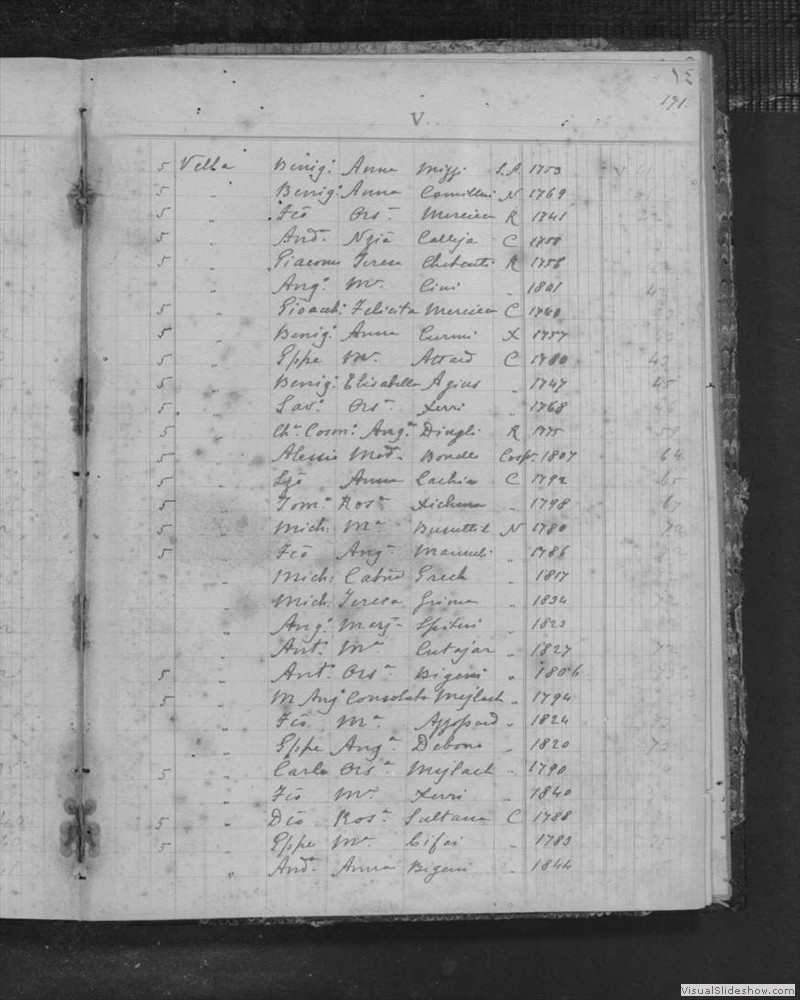 171.
V.
5 Vella Benig: Anna Mizzi S.A. 1753
5 " Benig: Anna Camilleri N 1769
5 " Fco Ors. Mercieca R 1741
5 " And. Nzia Calleja C 1758
5 " Giacomo Teresa R 1756
" Ang. Ma. Cini " 1801
5 " Gioacch: Felicita Mercieca C 1740
5 " Benig: Anna Curmi X 1757
5 " Gppe Ma. Attard C 1780
5 " Benig: Elisabetta Agius " 1747
5 " Sav. Ors. Xerri " 1768
5 " Ch. Cosm. Ang. Dingli R 1775
5 " Alessio Mad. Bondi Cosp. 1807
5 " Anna Cachia C 1792
5 " Tom. Ros. Xicluna " 1798
5 " Mich: Ma. Busuttil N 1780
5 " Fco Ang. " 1786
" Mich: Catna Grech " 1817
" Mich: Teresa Grima " 1834
" Ang. Spiteri " 1823
" Ant. Ma. Cutajar " 1827
5 " Ant. Ors. Bigeni " 1806
5 " M Ang. Consolata Mejlach " 1794
" Fco Ma. Azzopard " 1824
" Gppe Ang. Debono " 1820
5 " Carlo Ors. Mejlach " 1790
" Fco Ma. Xerri " 1840
5 " Dco Ros. Sultana C 1788
5 " Gppe Ma. Cifai " 1783
" And. Anna Bigeni " 1844
VisualSlideshow.com